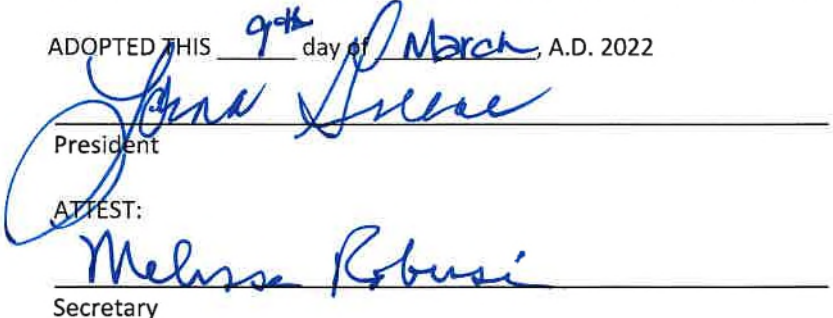 ADOPTED THIS 9th day of March, A.D. 2022
President
ATTEST:
Melissa Robusi
Secretary